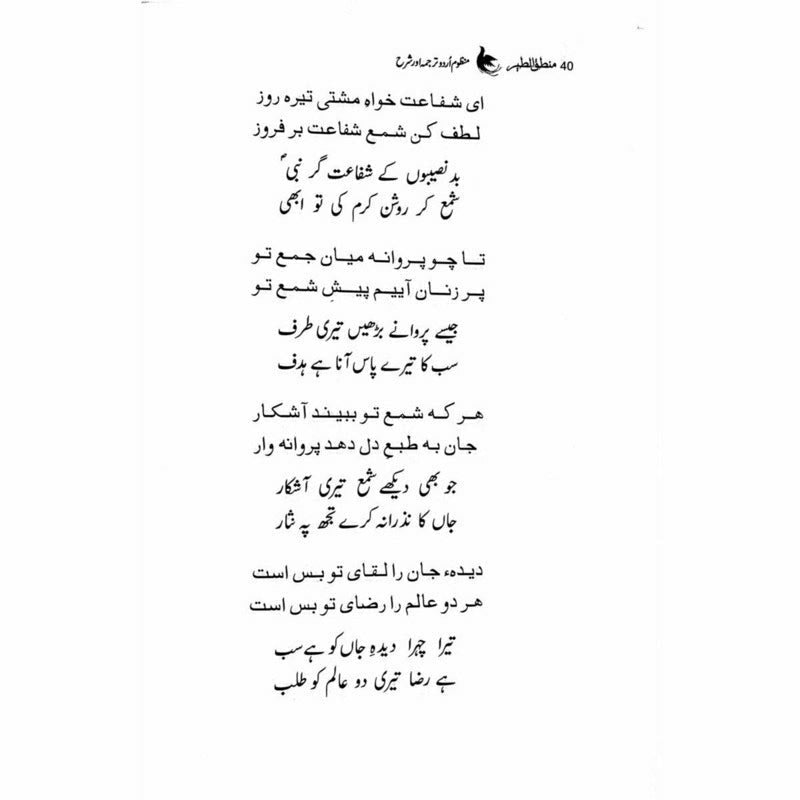 40 منطق الطیر منظوم اُردو ترجمہ اور شرح
ای شفاعت خواہِ مشتی تیرہ روز
لطف کن شمع شفاعت بر فروز
بد نصیبوں کے شفاعت گر نبیؐ
شمع کر روشن کرم کی تو ابھی
تا چو پروانہ میان جمع تو
پر زنان آییم پیشِ شمع تو
جیسے پروانے بڑھیں تیری طرف
سب کا تیرے پاس آنا ہے ہدف
هر که شمع تو ببیند آشکار
جان به طبعِ دل دهد پروانه وار
جو بھی دیکھے شمع تیری آشکار
جاں کا نذرانہ کرے تجھ پہ نثار
دیدہء جان را لقای تو بس است
هر دو عالم را رضای تو بس است
تیرا چہرا دیدہِ جاں کو ہے سب
ہے رضا تیری دو عالم کو طلب